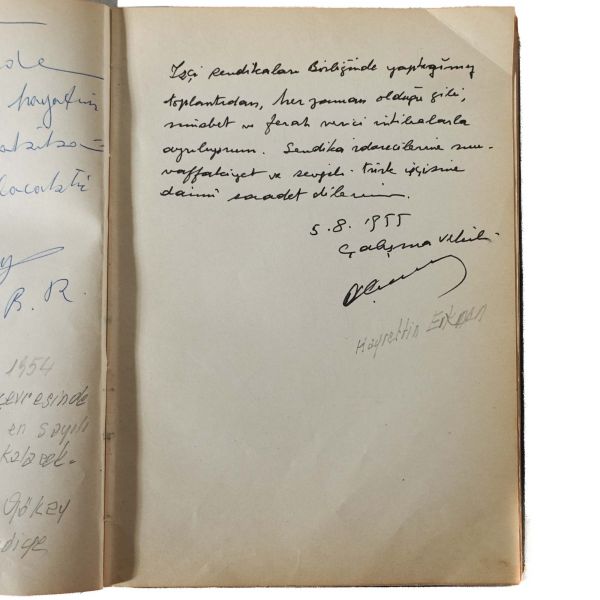 hayatın
B. R.
1954
çevresinde
en sayılı
kalacak.
Gökay
İşçi sendikaları Birliğinde yaptığımız
toplantıdan, her zaman olduğu gibi,
müsbet ve ferah verici intibalarla
ayrılıyorum. Sendika idarecilerine mu-
vaffakiyet ve sevgili türk işçisine
daimî saadet dilerim.
5.8.1955
Çalışma Vekili
Hayrettin Erkmen